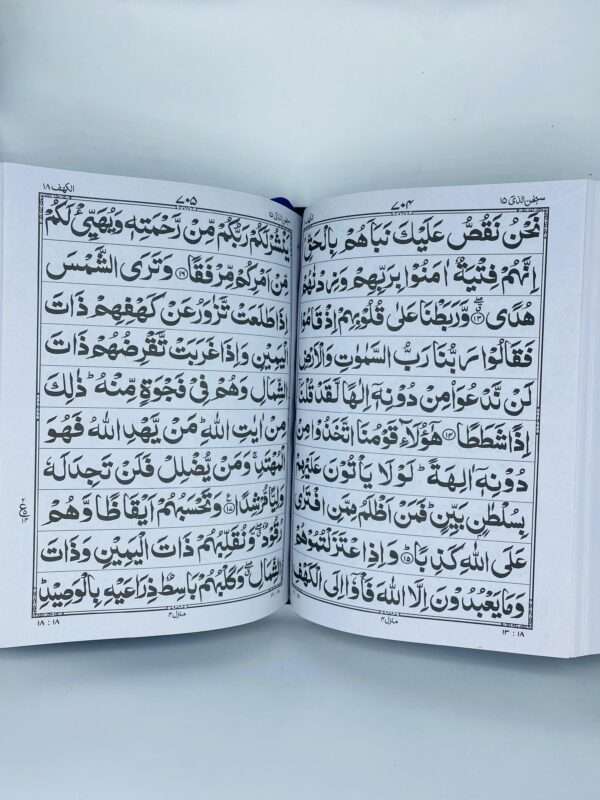 سبحٰن الذی ۱۵
۷۰۴
نَحْنُ نَقُصُّ عَلَيْكَ نَبَاَهُمْ بِالْحَقِّ ؕ
اِنَّهُمْ فِتْيَةٌ اٰمَنُوْا بِرَبِّهِمْ وَزِدْنٰهُمْ
هُدًى ۖۗ ﴿۱۳﴾ وَّرَبَطْنَا عَلٰى قُلُوْبِهِمْ اِذْ قَامُوْا
فَقَالُوْا رَبُّنَا رَبُّ السَّمٰوٰتِ وَالْاَرْضِ
لَنْ نَّدْعُوَا۟ مِنْ دُوْنِهٖۤ اِلٰهًا لَّقَدْ قُلْنَاۤ
اِذًا شَطَطًا ﴿۱۴﴾ هٰۤؤُلَآءِ قَوْمُنَا اتَّخَذُوْا مِنْ
دُوْنِهٖۤ اٰلِهَةً ؕ لَوْلَا يَاْتُوْنَ عَلَيْهِمْ
بِسُلْطٰنٍۭ بَيِّنٍ ؕ فَمَنْ اَظْلَمُ مِمَّنِ افْتَرٰى
عَلَى اللّٰهِ كَذِبًا ؕ ﴿۱۵﴾ وَاِذِ اعْتَزَلْتُمُوْهُمْ
وَمَا يَعْبُدُوْنَ اِلَّا اللّٰهَ فَاْوٗۤا اِلَى الْكَهْفِ
منزل ۴
۱۸ : ۱۳
الكهف ۱۸
۷۰۵
سبحٰن الذی ۱۵
يَنْشُرْ لَكُمْ رَبُّكُمْ مِّنْ رَّحْمَتِهٖ وَيُهَيِّئْ لَكُمْ
مِّنْ اَمْرِكُمْ مِّرْفَقًا ﴿۱۶﴾ وَتَرَى الشَّمْسَ
اِذَا طَلَعَتْ تَّزٰوَرُ عَنْ كَهْفِهِمْ ذَاتَ
الْيَمِيْنِ وَاِذَا غَرَبَتْ تَّقْرِضُهُمْ ذَاتَ
الشِّمَالِ وَهُمْ فِيْ فَجْوَةٍ مِّنْهُ ؕ ذٰلِكَ
مِنْ اٰيٰتِ اللّٰهِ ؕ مَنْ يَّهْدِ اللّٰهُ فَهُوَ
الْمُهْتَدِ ۚ وَمَنْ يُّضْلِلْ فَلَنْ تَجِدَ لَهٗ
وَلِيًّا مُّرْشِدًا ﴿۱۷﴾ وَتَحْسَبُهُمْ اَيْقَاظًا وَّهُمْ
رُقُوْدٌ ۖۗ وَّنُقَلِّبُهُمْ ذَاتَ الْيَمِيْنِ وَذَاتَ
الشِّمَالِ ۖۗ وَكَلْبُهُمْ بَاسِطٌ ذِرَاعَيْهِ بِالْوَصِيْدِ ؕ
منزل ۴
۱۸ : ۱۸